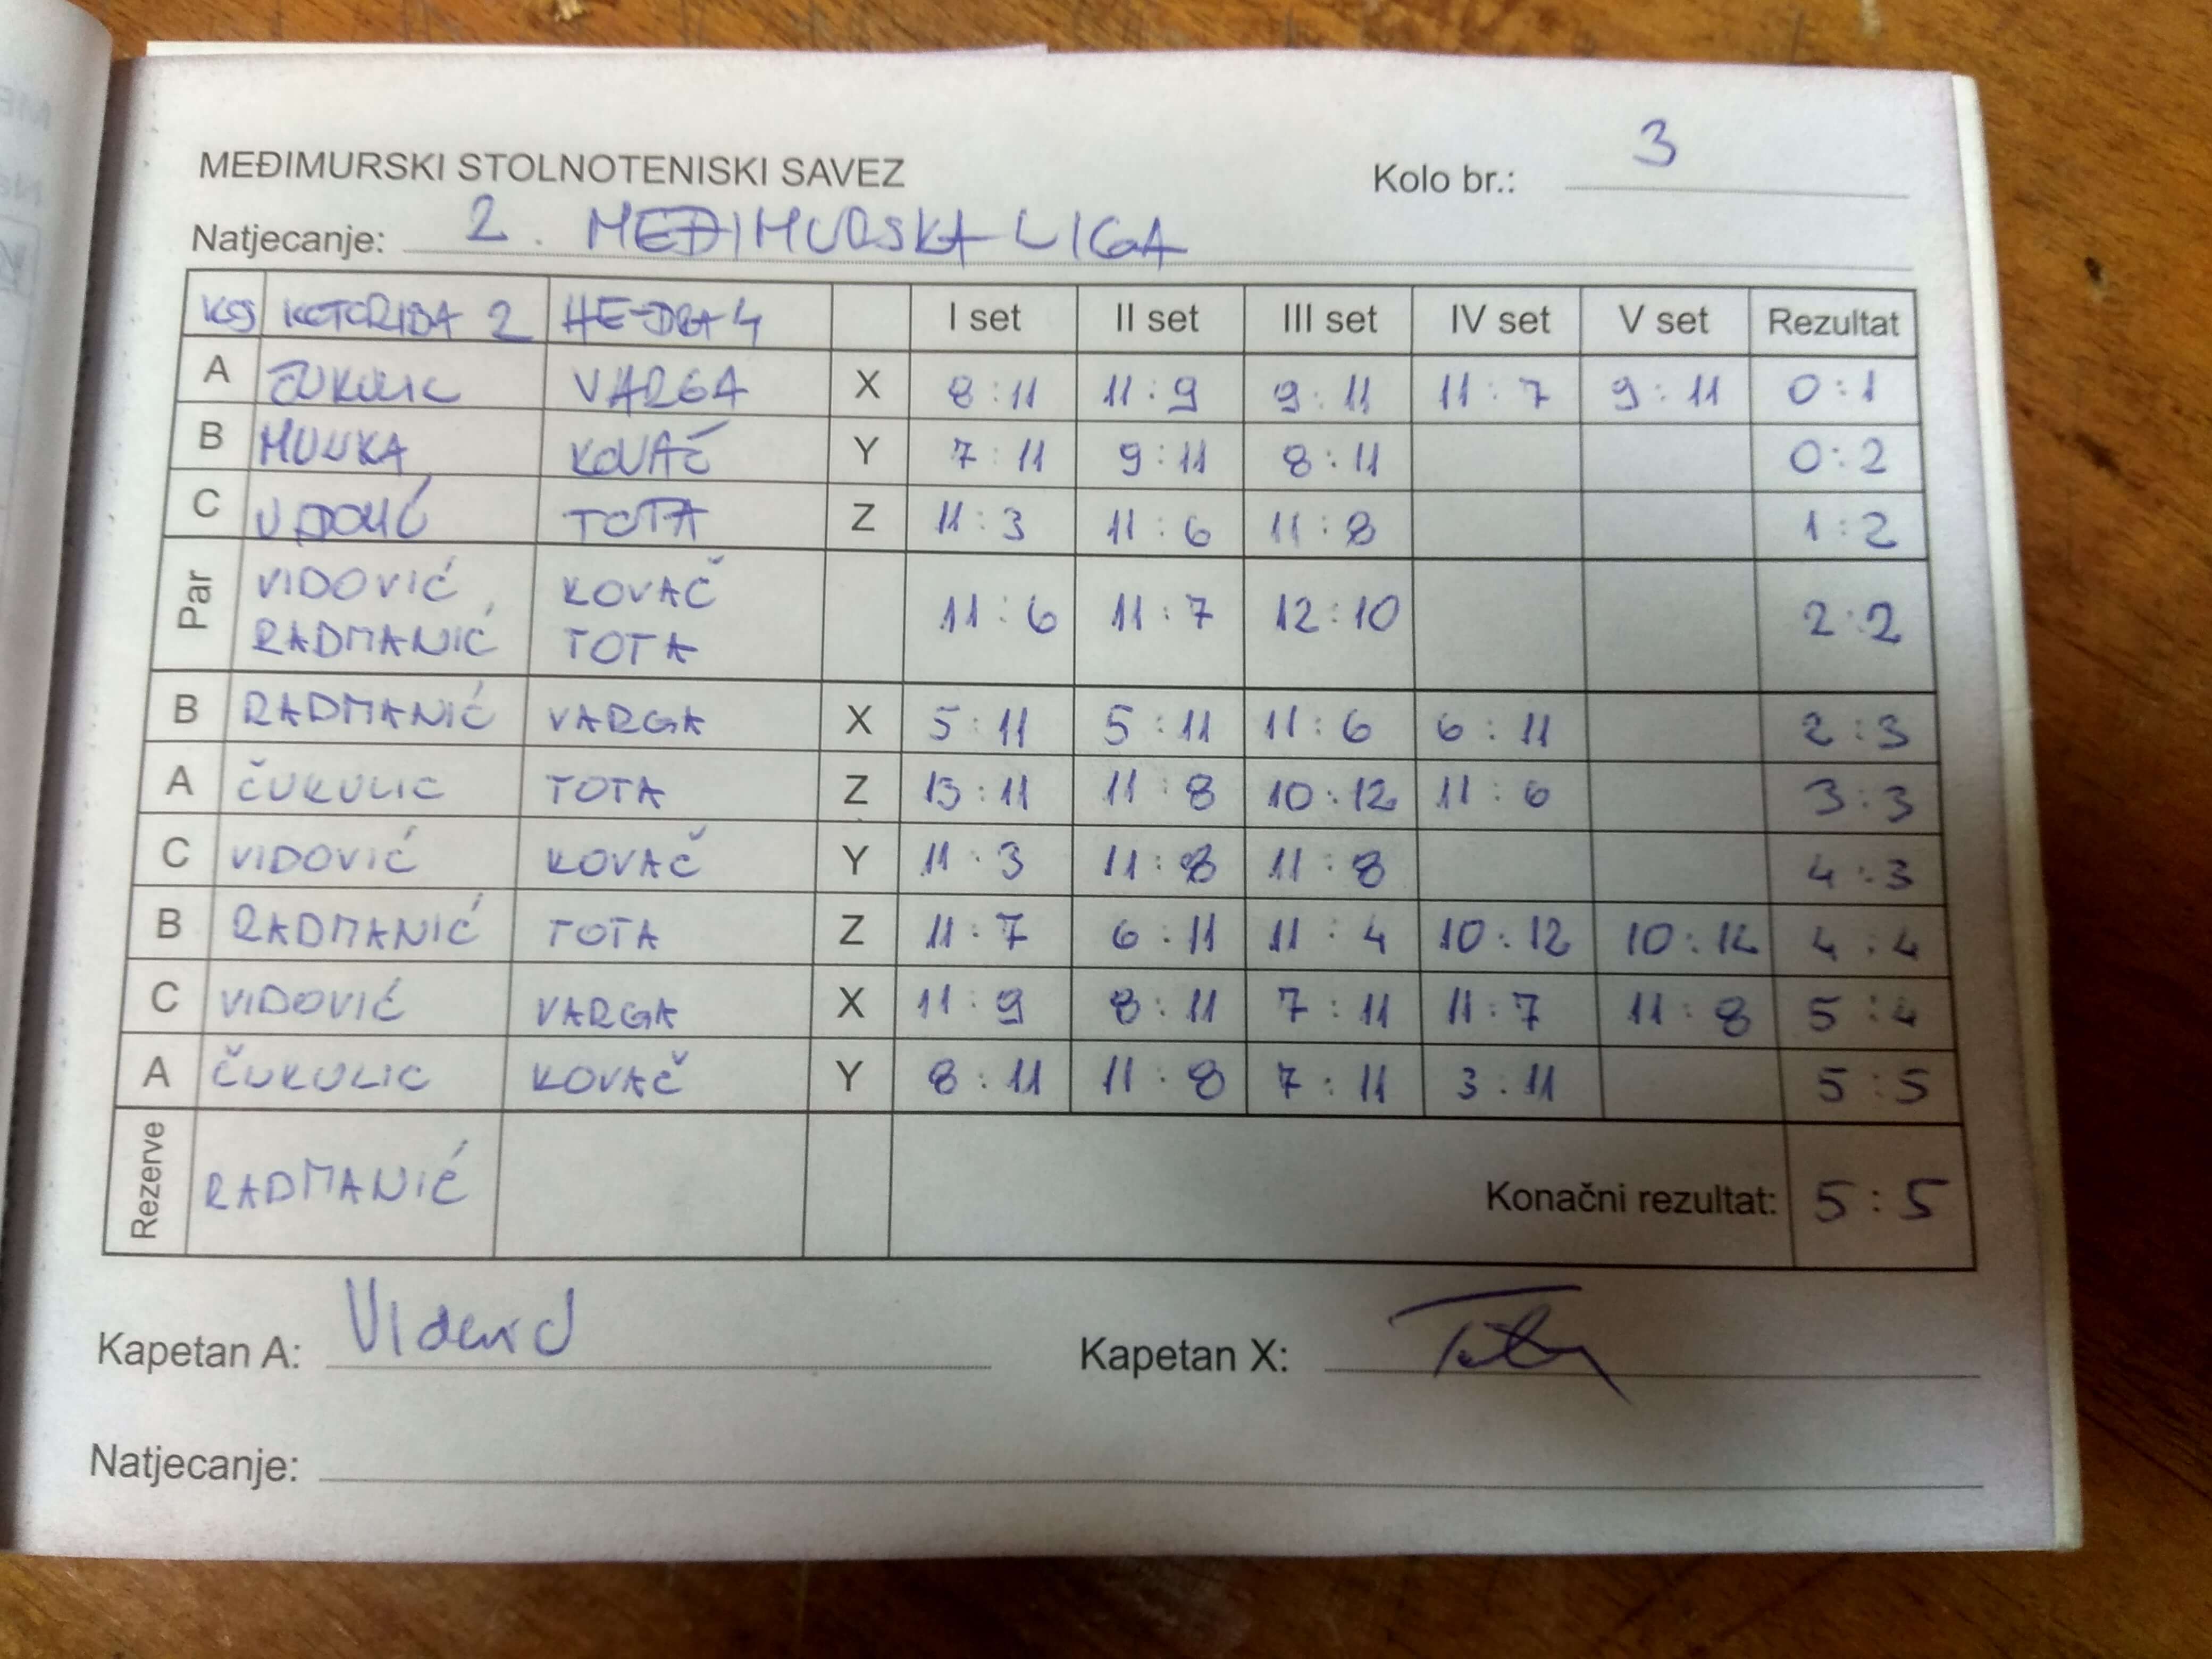 MEĐIMURSKI STOLNOTENISKI SAVEZ Kolo br.: 3
Natjecanje: 2. MEĐIMURSKA LIGA
KOTORIBA 2 HE-DEA 4 I set II set III set IV set V set Rezultat
A ČUKULIC VARGA X 8:11 11:9 9:11 11:7 9:11 0:1
B KOVAČ Y 7:11 9:11 8:11 0:2
C TOTA Z 11:3 11:6 11:8 1:2
Par
VIDOVIĆ, KOVAČ
RADMANIĆ TOTA
11:6 11:7 12:10 2:2
B RADMANIĆ VARGA X 5:11 5:11 11:6 6:11 2:3
A ČUKULIC TOTA Z 13:11 11:8 10:12 11:6 3:3
C VIDOVIĆ KOVAČ Y 11:3 11:8 11:8 4:3
B RADMANIĆ TOTA Z 11:7 6:11 11:4 10:12 10:12 4:4
C VIDOVIĆ VARGA X 11:9 8:11 7:11 11:7 11:8 5:4
A ČUKULIC KOVAČ Y 8:11 11:8 7:11 3:11 5:5
Rezerve RADMANIĆ Konačni rezultat: 5:5
Kapetan A: Kapetan X:
Natjecanje: